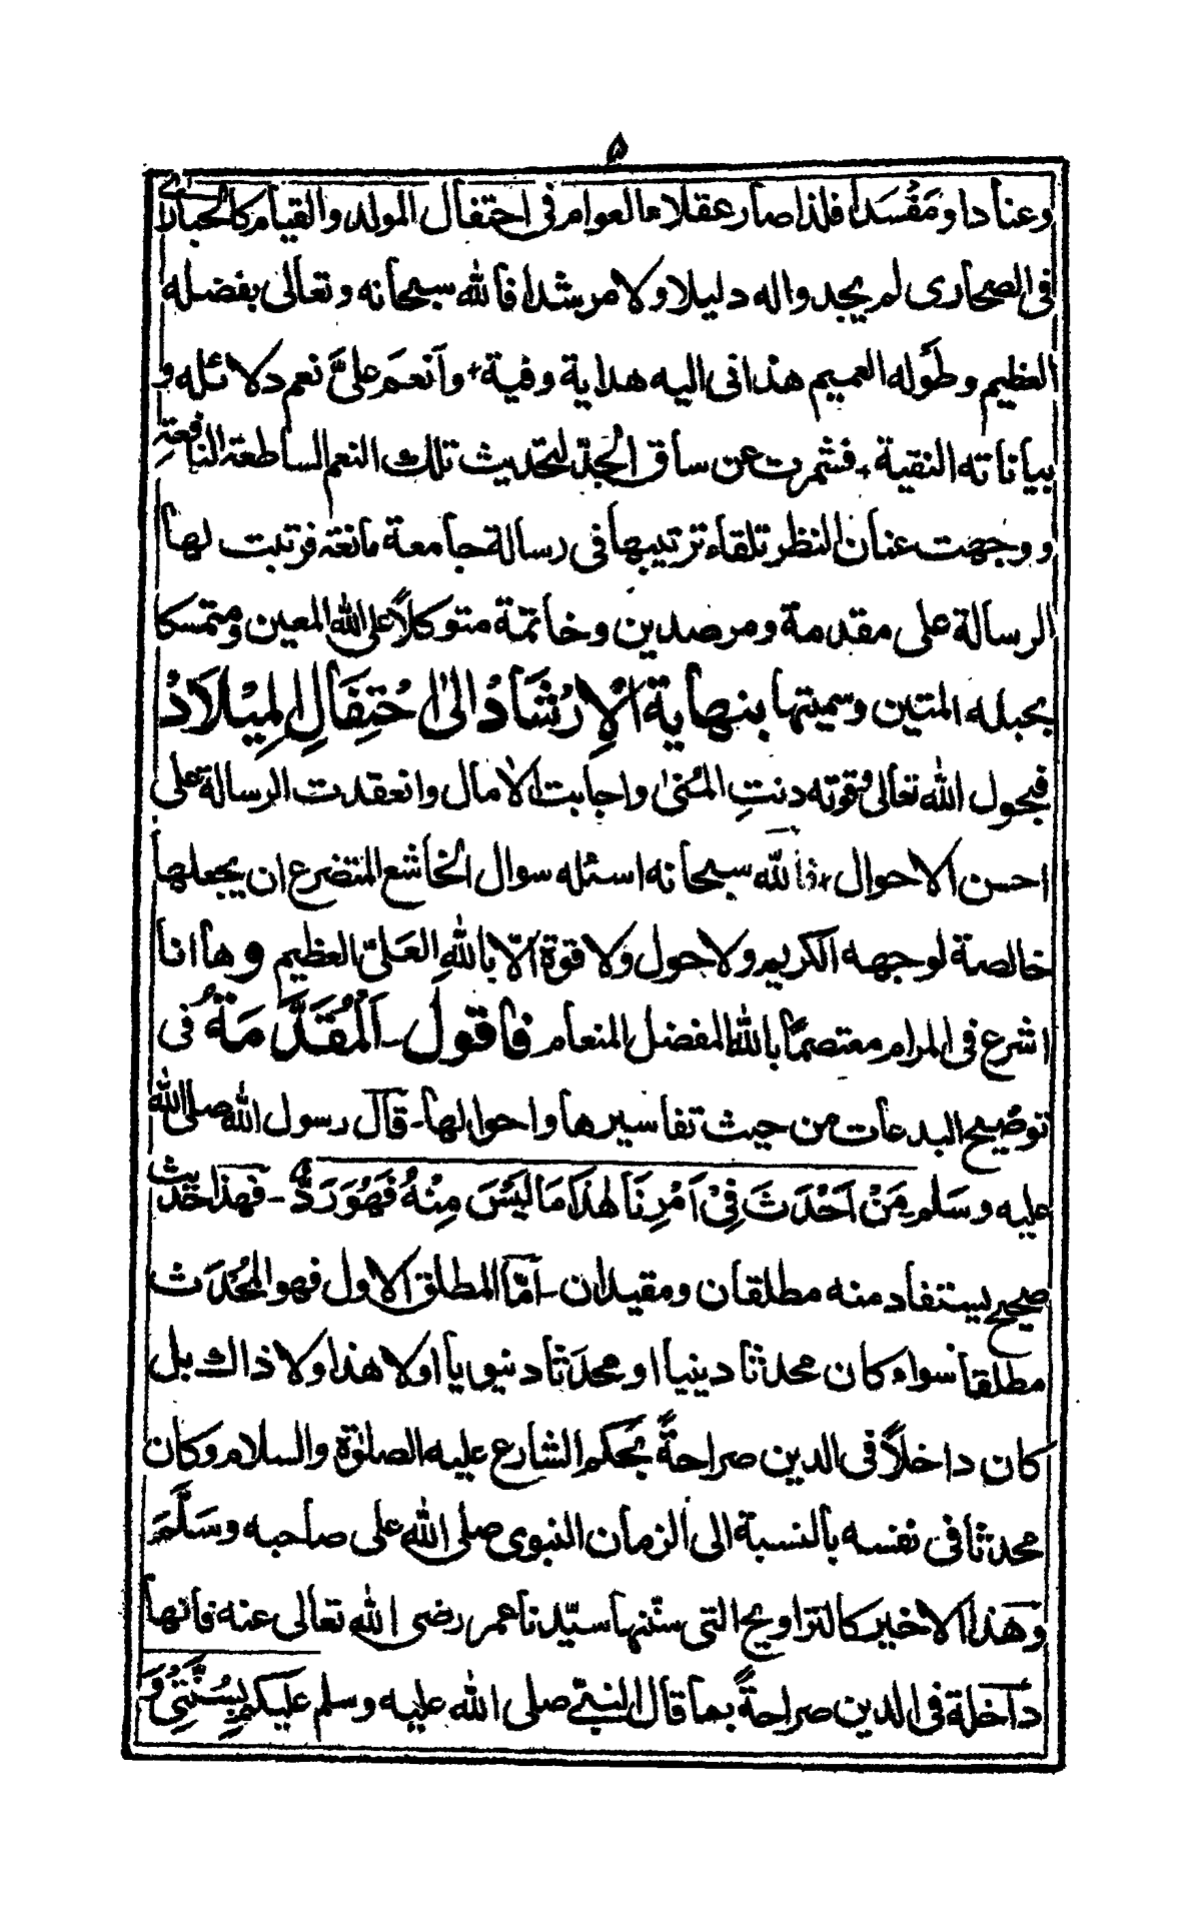 ۵
وعنادا ومَفْسَدا فلذا صار عقلاء العوام فى احتفال المولد والقيام كالحبارى
فى الصحارى لم يجدوا له دليلا ولا مرشدا فالله سبحانه وتعالى بفضله
العظيم وطَوله العميم هذانى اليه هداية وفية + وآنعَم علىَّ نعم دلائله و
بياناته النقية + فشمرت عن ساق الجدّ لتحديث تلك النعم الساطعة النافعة
ووجهت عنان النظر تلقاء ترتيبها فى رسالة جامعة مانعة فرتبت لها
الرسالة على مقدمة ومرصدين وخاتمة متوكلاً على الله المعين ومتمسكا
بحبله المتين وسميتها بنهاية الْاِرْشَادْ الىٰ احْتِفَالِ الْمِيْلَادْ
فبحول الله تعالى وقوته دنتِ المُنىٰ واجابت الاٰمال وانعقدت الرسالة على
احسن الاحوال + فالله سبحانه اسئله سوال الخاشع المتضرع ان يجعلها
خالصة لوجهه الكريم ولا حول ولا قوة الّا باللهِ العَلىّ العظيم وها انا
اشرع فى المرام معتصمًا بالله المفضل المنعام فاقول - اَلْمُقَدَّمَةُ فى
توضيح البدعات من حيث تفاسيرها واحوالها - قال رسول الله صلى الله
عليه وسَلم مَنْ اَحْدَثَ فِىْ اَمْرِنَا هٰذَا مَا لَيْسَ مِنْهُ فَهُوَ رَدٌّ - فهذا حديث
صحيح يستفاد منه مطلقان ومقيدان - اَمّا المطلق الاول فهو المُحْدَث
مطلقا سواء كان محدثا دينيا او محدَثا دنيويا اولا هذا ولا ذاك بل
كان داخلاً فى الدين صراحةً بحكم الشارع عليه الصلوٰة والسلام وكان
محدثا فى نفسه بالنسبة الى الزمان النبوى صلى الله على صاحبه وسَلَّمَ
وهَذا الاخير كالتراويح التى سنّنها سيّدنا عمر رضى الله تعالى عنه فانها
داخلة فى الدين صراحةً بما قال النبىّ صلى الله عليه وسلم عليكم بِسُنَّتِىْ وَ